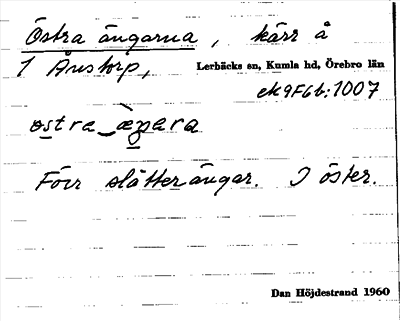 Östra ängarna, kärr å
1 Ånstorp, Lerbäcks sn, Kumla hd, Örebro län
ek9F6b:1007
östra ängara
Förr slåtterängar. I öster.
Dan Höjdestrand 1960